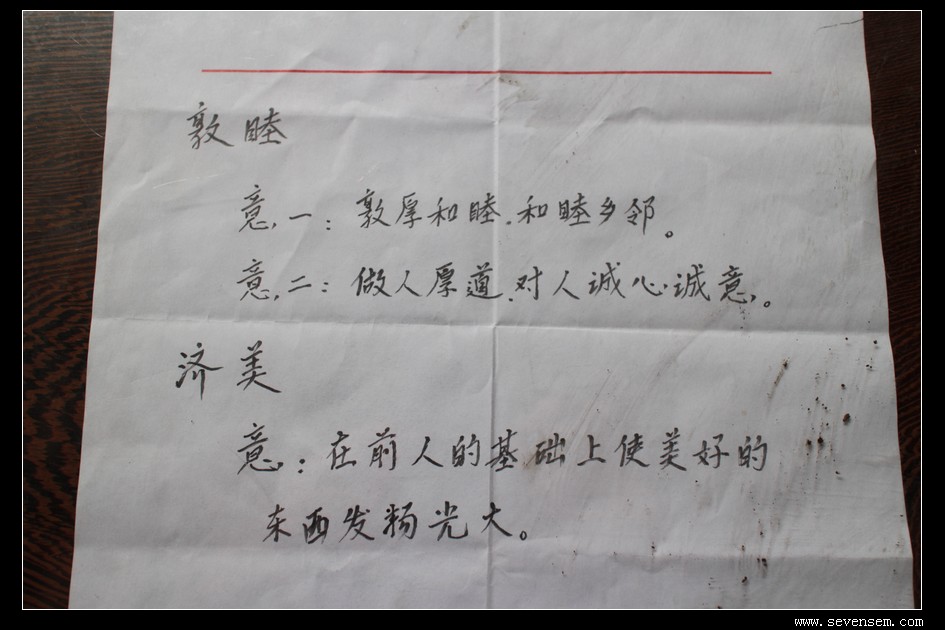 敦睦
意,一:敦厚和睦.和睦乡邻。
意,二:做人厚道.对人诚心诚意,。
济美
意:在前人的基础上使美好的
东西发扬光大。
www.sevensem.com